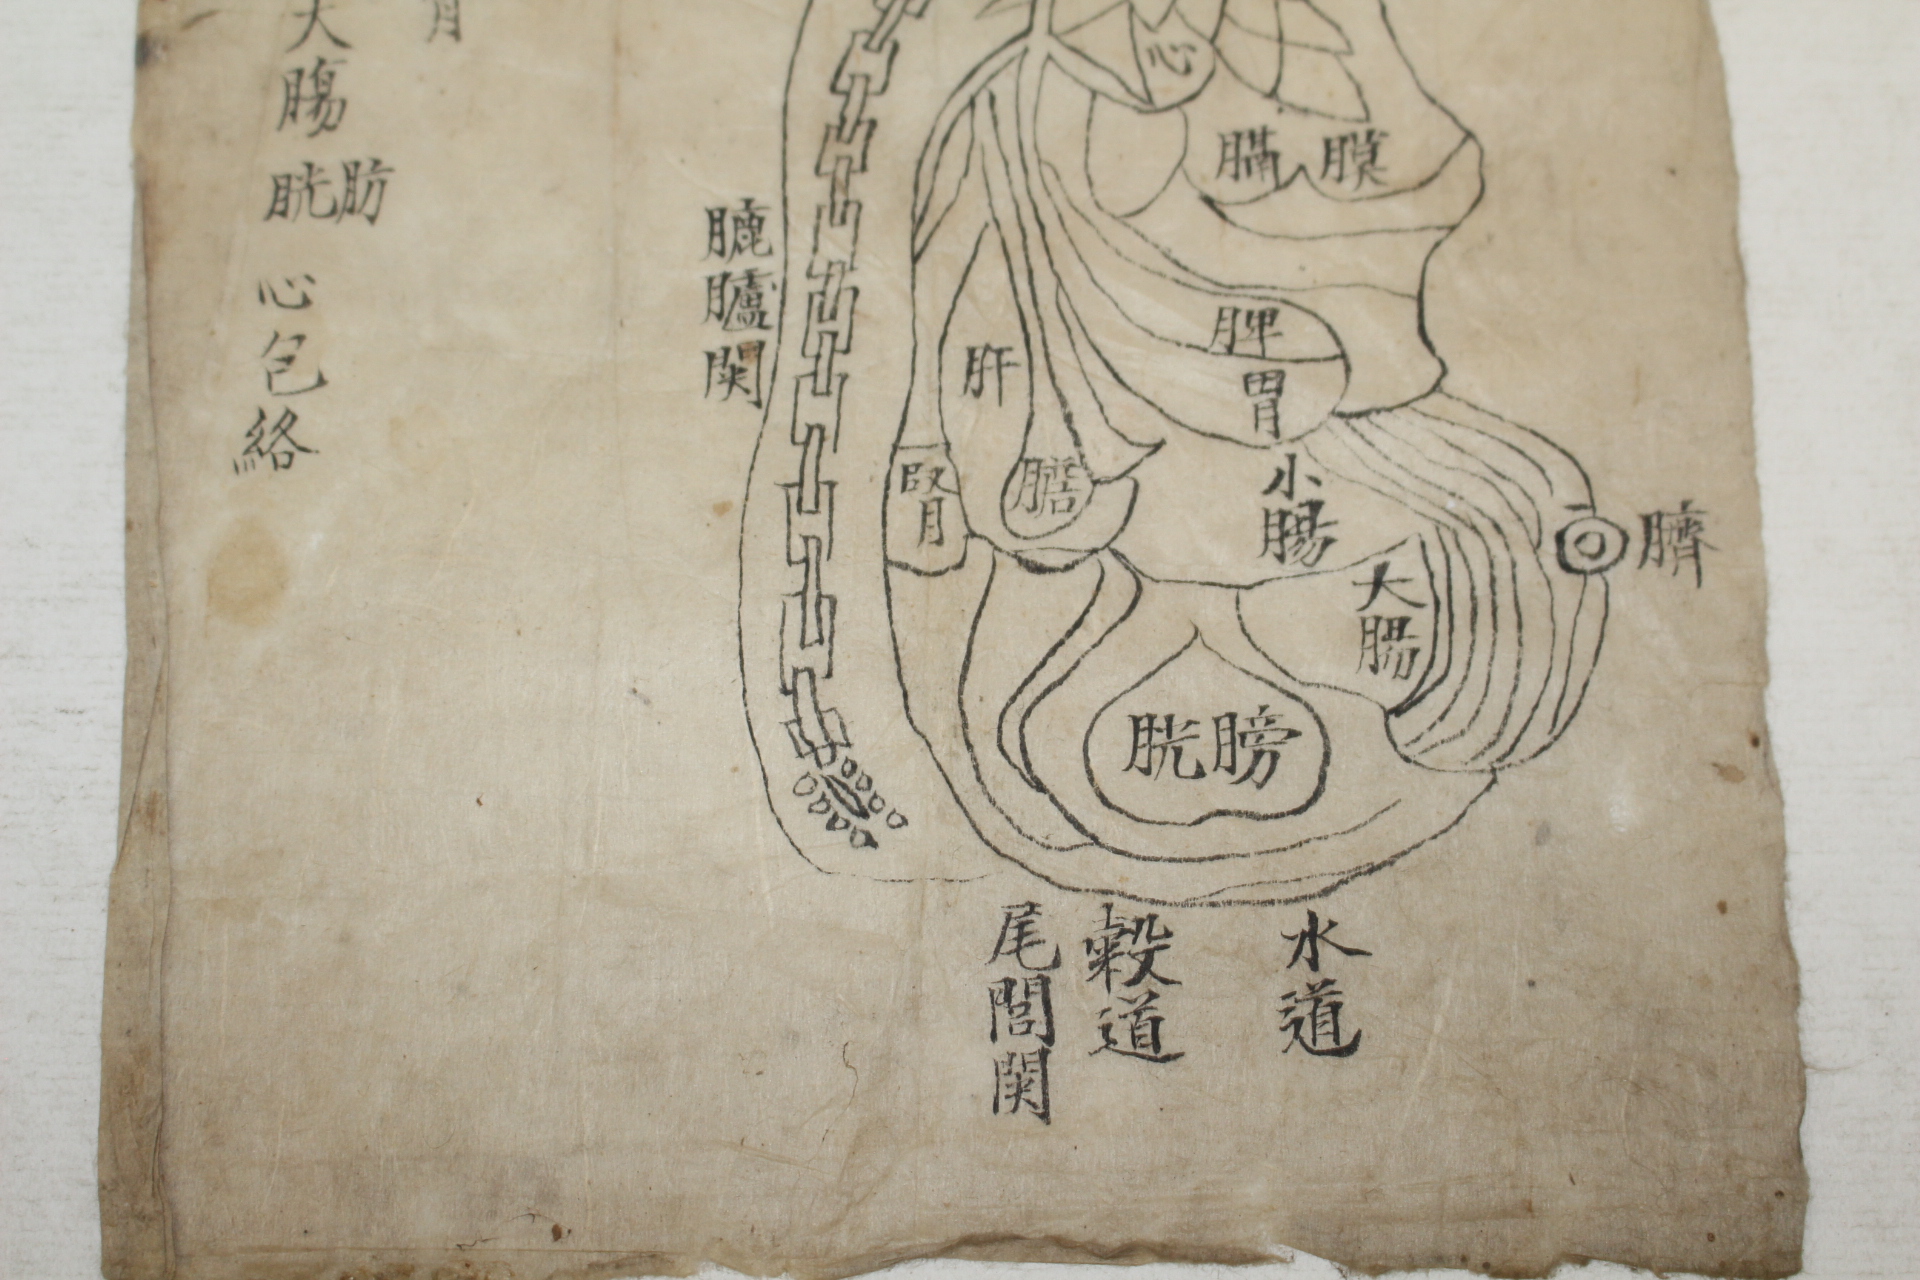 大
膓
胱肪
心
包
絡
心
膈膜
臕
臚
関
脾
胃
肝
腎
膽
小
腸
臍
大
腸
胱膀
尾
閭
関
穀
道
水
道